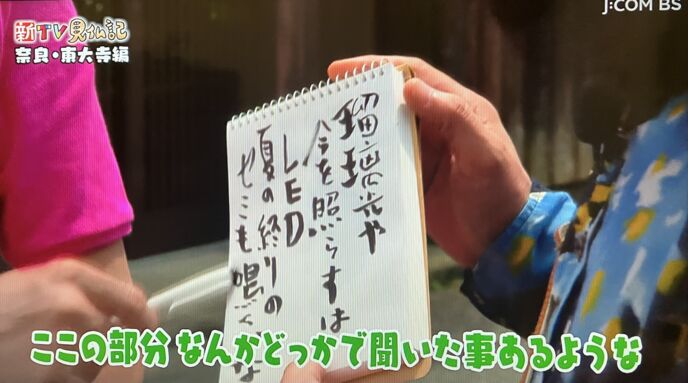 新TV見仏記
奈良・東大寺編
J:COM BS
瑠璃光や
今を照らすは
LED
夏の終りの
セミも鳴く
ここの部分 なんかどっかで聞いた事あるような